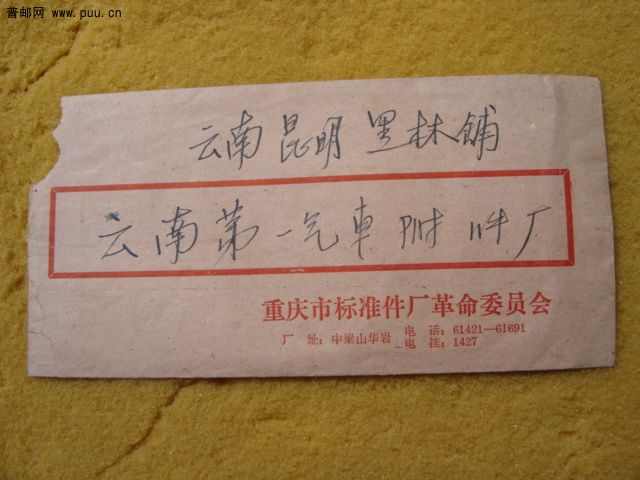 普邮网 www.puu.cn
云南昆明黑林铺
云南第一汽車附件厂
重庆市标准件厂革命委员会
厂 址：中梁山华岩 电 话：61421—61691
电 挂：1427